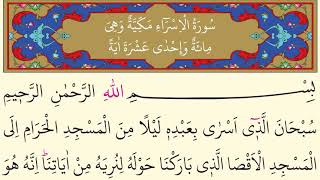 سُورَةُ الْاِسْرَٓاءِ مَكِّيَّةٌ وَهِيَ
مِائَةٌ وَاِحْدٰى عَشْرَةَ اٰيَةً
بِسْمِ اللّٰهِ الرَّحْمٰنِ الرَّحٖيمِ
سُبْحَانَ الَّذٖٓي اَسْرٰى بِعَبْدِهٖ لَيْلًا مِنَ الْمَسْجِدِ الْحَرَامِ اِلَى
الْمَسْجِدِ الْاَقْصَا الَّذٖي بَارَكْنَا حَوْلَهُ لِنُرِيَهُ مِنْ اٰيَاتِنَاۜ اِنَّهُ هُوَ